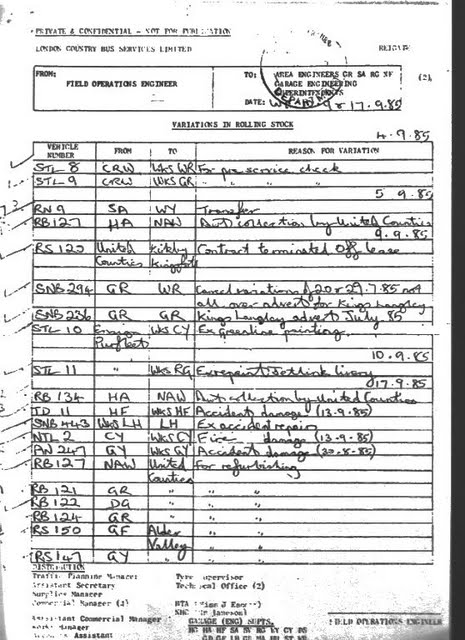 PRIVATE & CONFIDENTIAL - NOT FOR PUBLICATION
LONDON COUNTRY BUS SERVICES LIMITED REIGATE
FROM: FIELD OPERATIONS ENGINEER TO: AREA ENGINEERS GR SA RG NF (2)
GARAGE ENGINEERING
SUPERINTENDENTS
DATE: 17.9.85
VARIATIONS IN ROLLING STOCK
4.9.85
VEHICLE NUMBER FROM TO REASON FOR VARIATION
STL 8 CRW WKS WR For pre service check
STL 9 CRW WKS GR " " "
5.9.85
RN 9 SA WY Transfer
RB 127 HA NAW Await collection by United Counties
9.9.85
RS 123 United Counties Contract terminated Off lease
SNB 294 GR WR Cancel variations of 20 & 29.7.85 not
all-over advert for Kings Langley
SNB 236 GR GR Kings Langley advert July 85
STL 10 Ensign Purfleet WKS CY Ex Greenline painting.
10.9.85
STL 11 " WKS RG Ex repaint Jetlink livery
17.9.85
RB 134 HA NAW Await collection by United Counties
TD 11 HF WKS HF Accident damage (13.9.85)
SNB 443 WKS LH LH Ex accident repair
NTL 2 CY WKS CY Fire damage (13.9.85)
AN 247 GY WKS GY Accident damage (30.8.85)
RB 127 NAW United Counties For refurbishing
RB 121 GR " " "
RB 122 DG " " "
RB 124 GR " " "
RS 150 GF Alder Valley " "
RS 147 GY " " "
DISTRIBUTION
Traffic Planning Manager Type Supervisor
Assistant Secretary Technical Office (2)
Supplies Manager
Commercial Manager (2)
Assistant Commercial Manager GARAGE (ENG) SUPTS.
Works Manager
Assistant
FIELD OPERATIONS ENGINEER